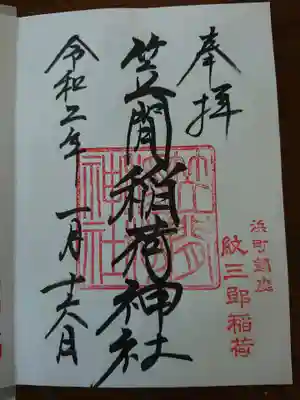 奉拝
浜町鎮座
紋三郎稲荷
笠間稲荷神社
笠間稲荷神社
令和二年 一月十六日